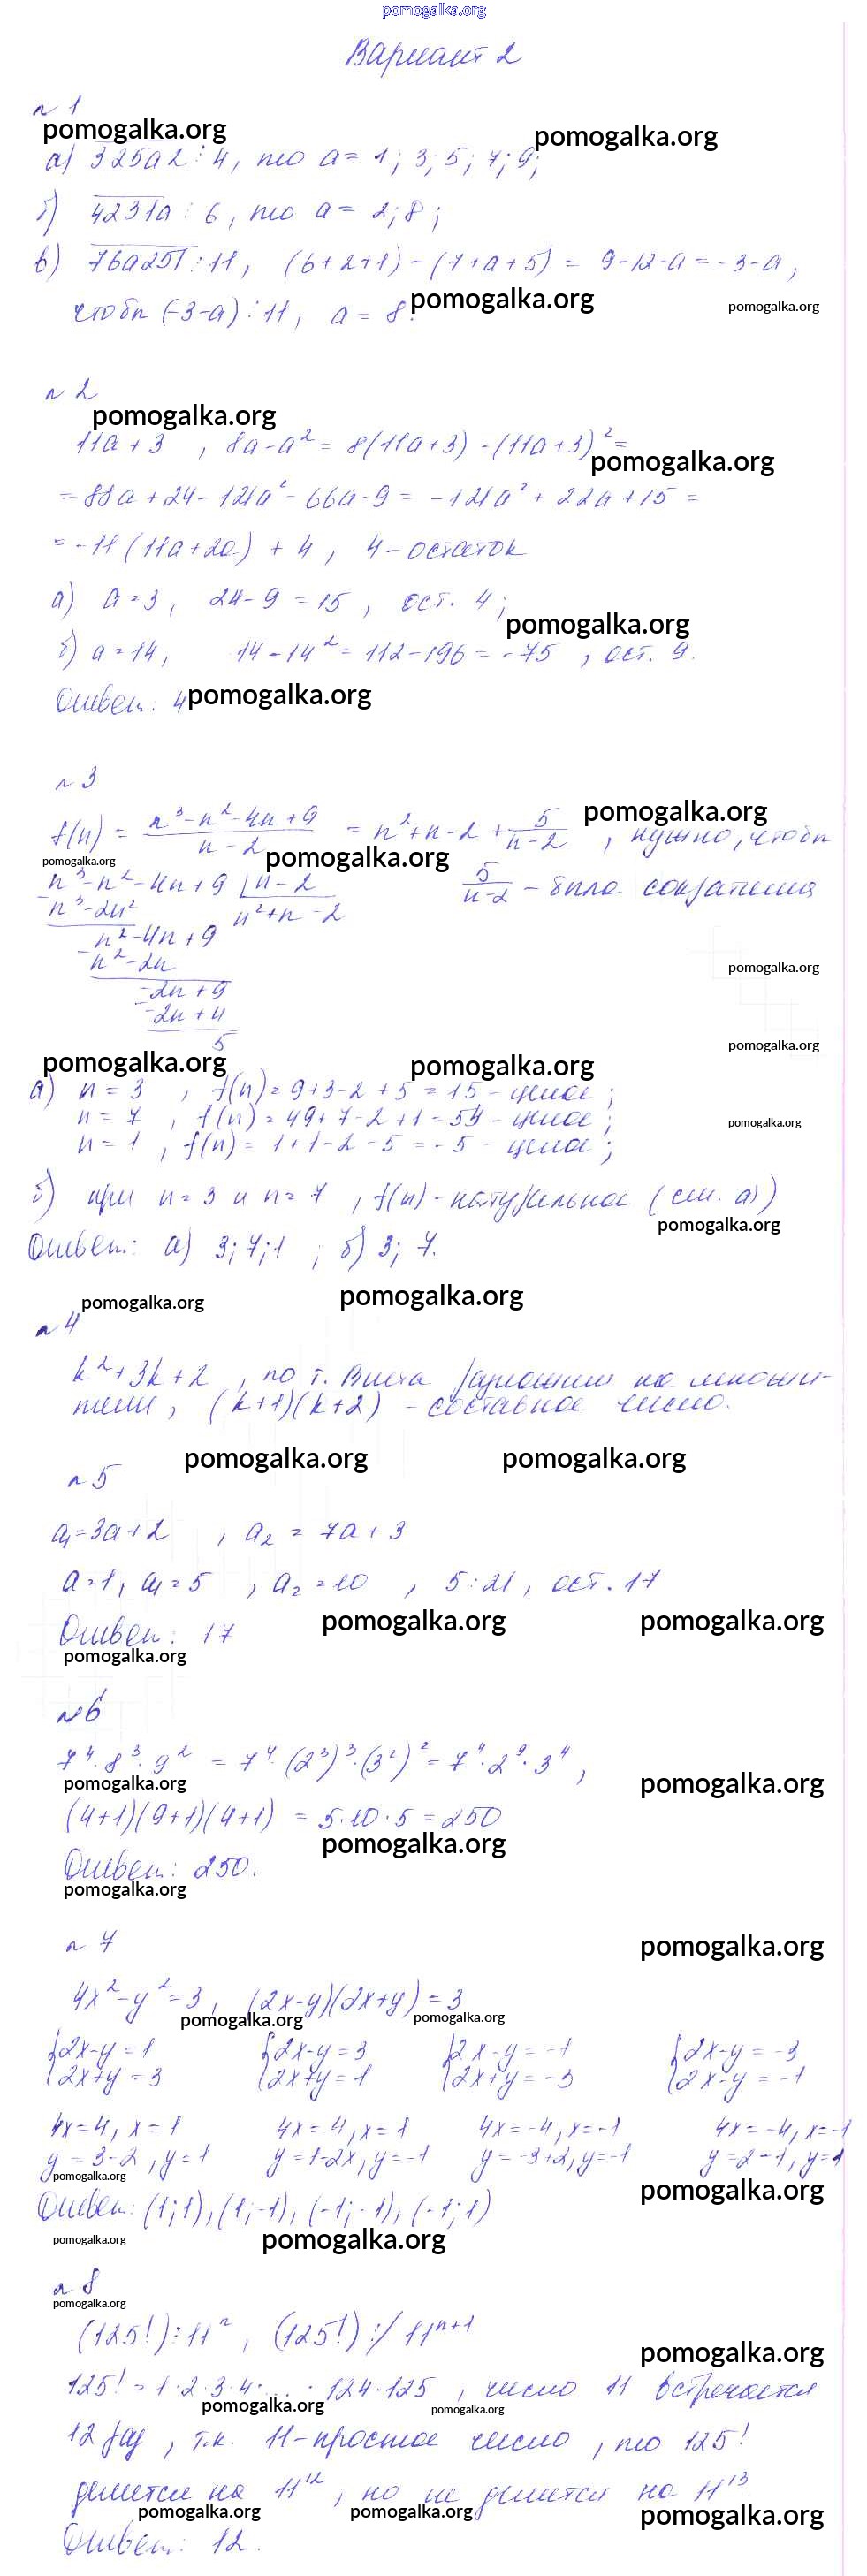 pomogalka.org
Вариант 2
n 1
pomogalka.org pomogalka.org
а) 325a2 ⋮ 4, то a = 1; 3; 5; 7; 9;
б) 4231a ⋮ 6, то a = 2; 8;
в) 76a251 ⋮ 11, (6+2+1) - (7+a+5) = 9-12-a = -3-a,
pomogalka.org pomogalka.org
чтобы (-3-a) ⋮ 11, a = 8.
n 2
pomogalka.org
11a + 3, 8a - a² = 8(11a+3) - (11a+3)² =
pomogalka.org
= 88a + 24 - 121a² - 66a - 9 = -121a² + 22a + 15 =
= -11(11a+2a) + 4, 4 - остаток
а) a = 3, 24 - 9 = 15, ост. 4;
pomogalka.org
б) a = 14, 14 - 14² = 112 - 196 = -75, ост. 9.
Ответ: 4 pomogalka.org
n 3
pomogalka.org
f(n) = (n³ - n² - 4n + 9)/(n - 2) = n² + n - 2 + 5/(n-2), нужно, чтобы
pomogalka.org pomogalka.org
n³ - n² - 4n + 9 | n - 2 5/(n-2) - было сокращения
n³ - 2n² n² + n - 2
n² - 4n + 9
n² - 2n
pomogalka.org
-2n + 9
-2n + 4
5
pomogalka.org
pomogalka.org pomogalka.org
а) n = 3, f(n) = 9+3-2+5 = 15 - целое;
n = 7, f(n) = 49+7-2+1 = 54 - целое;
pomogalka.org
n = 1, f(n) = 1+1-2-5 = -5 - целое;
б) при n = 3 и n = 7, f(n) - натуральное (см. а))
pomogalka.org
Ответ: а) 3; 7; 1; б) 3; 7.
pomogalka.org pomogalka.org
n 4
k² + 3k + 2, по т. Виета разложим на множи-
тели, (k+1)(k+2) - составное число.
pomogalka.org pomogalka.org
n 5
a₁ = 3a + 2, a₂ = 7a + 3
a = 1, a₁ = 5, a₂ = 10, 5 : 21, ост. 17
pomogalka.org pomogalka.org
Ответ: 17
pomogalka.org
n 6
7⁴ · 8³ · 9² = 7⁴ · (2³)³ · (3²)² = 7⁴ · 2⁹ · 3⁴,
pomogalka.org pomogalka.org
(4+1)(9+1)(4+1) = 5·10·5 = 250
pomogalka.org
Ответ: 250.
pomogalka.org
n 7
pomogalka.org
4x² - y² = 3, (2x-y)(2x+y) = 3
pomogalka.org pomogalka.org
{2x-y = 1 {2x-y = 3 {2x-y = -1 {2x-y = -3
2x+y = 3 2x+y = 1 2x+y = -3 2x-y = -1
4x = 4, x = 1 4x = 4, x = 1 4x = -4, x = -1 4x = -4, x = -1
y = 3-2, y = 1 y = 1-2x, y = -1 y = -3+2, y = -1 y = 2-1, y = 1
pomogalka.org pomogalka.org
Ответ: (1; 1), (1; -1), (-1; -1), (-1; 1)
pomogalka.org pomogalka.org
n 8
pomogalka.org
(125!) ⋮ 11ⁿ, (125!) ⋮/ 11ⁿ⁺¹
pomogalka.org
125! = 1·2·3·4·...·124·125, число 11 встречается
pomogalka.org pomogalka.org
12 раз, т.к. 11 - простое число, то 125!
делится на 11¹², но не делится на 11¹³
pomogalka.org pomogalka.org pomogalka.org
Ответ: 12.